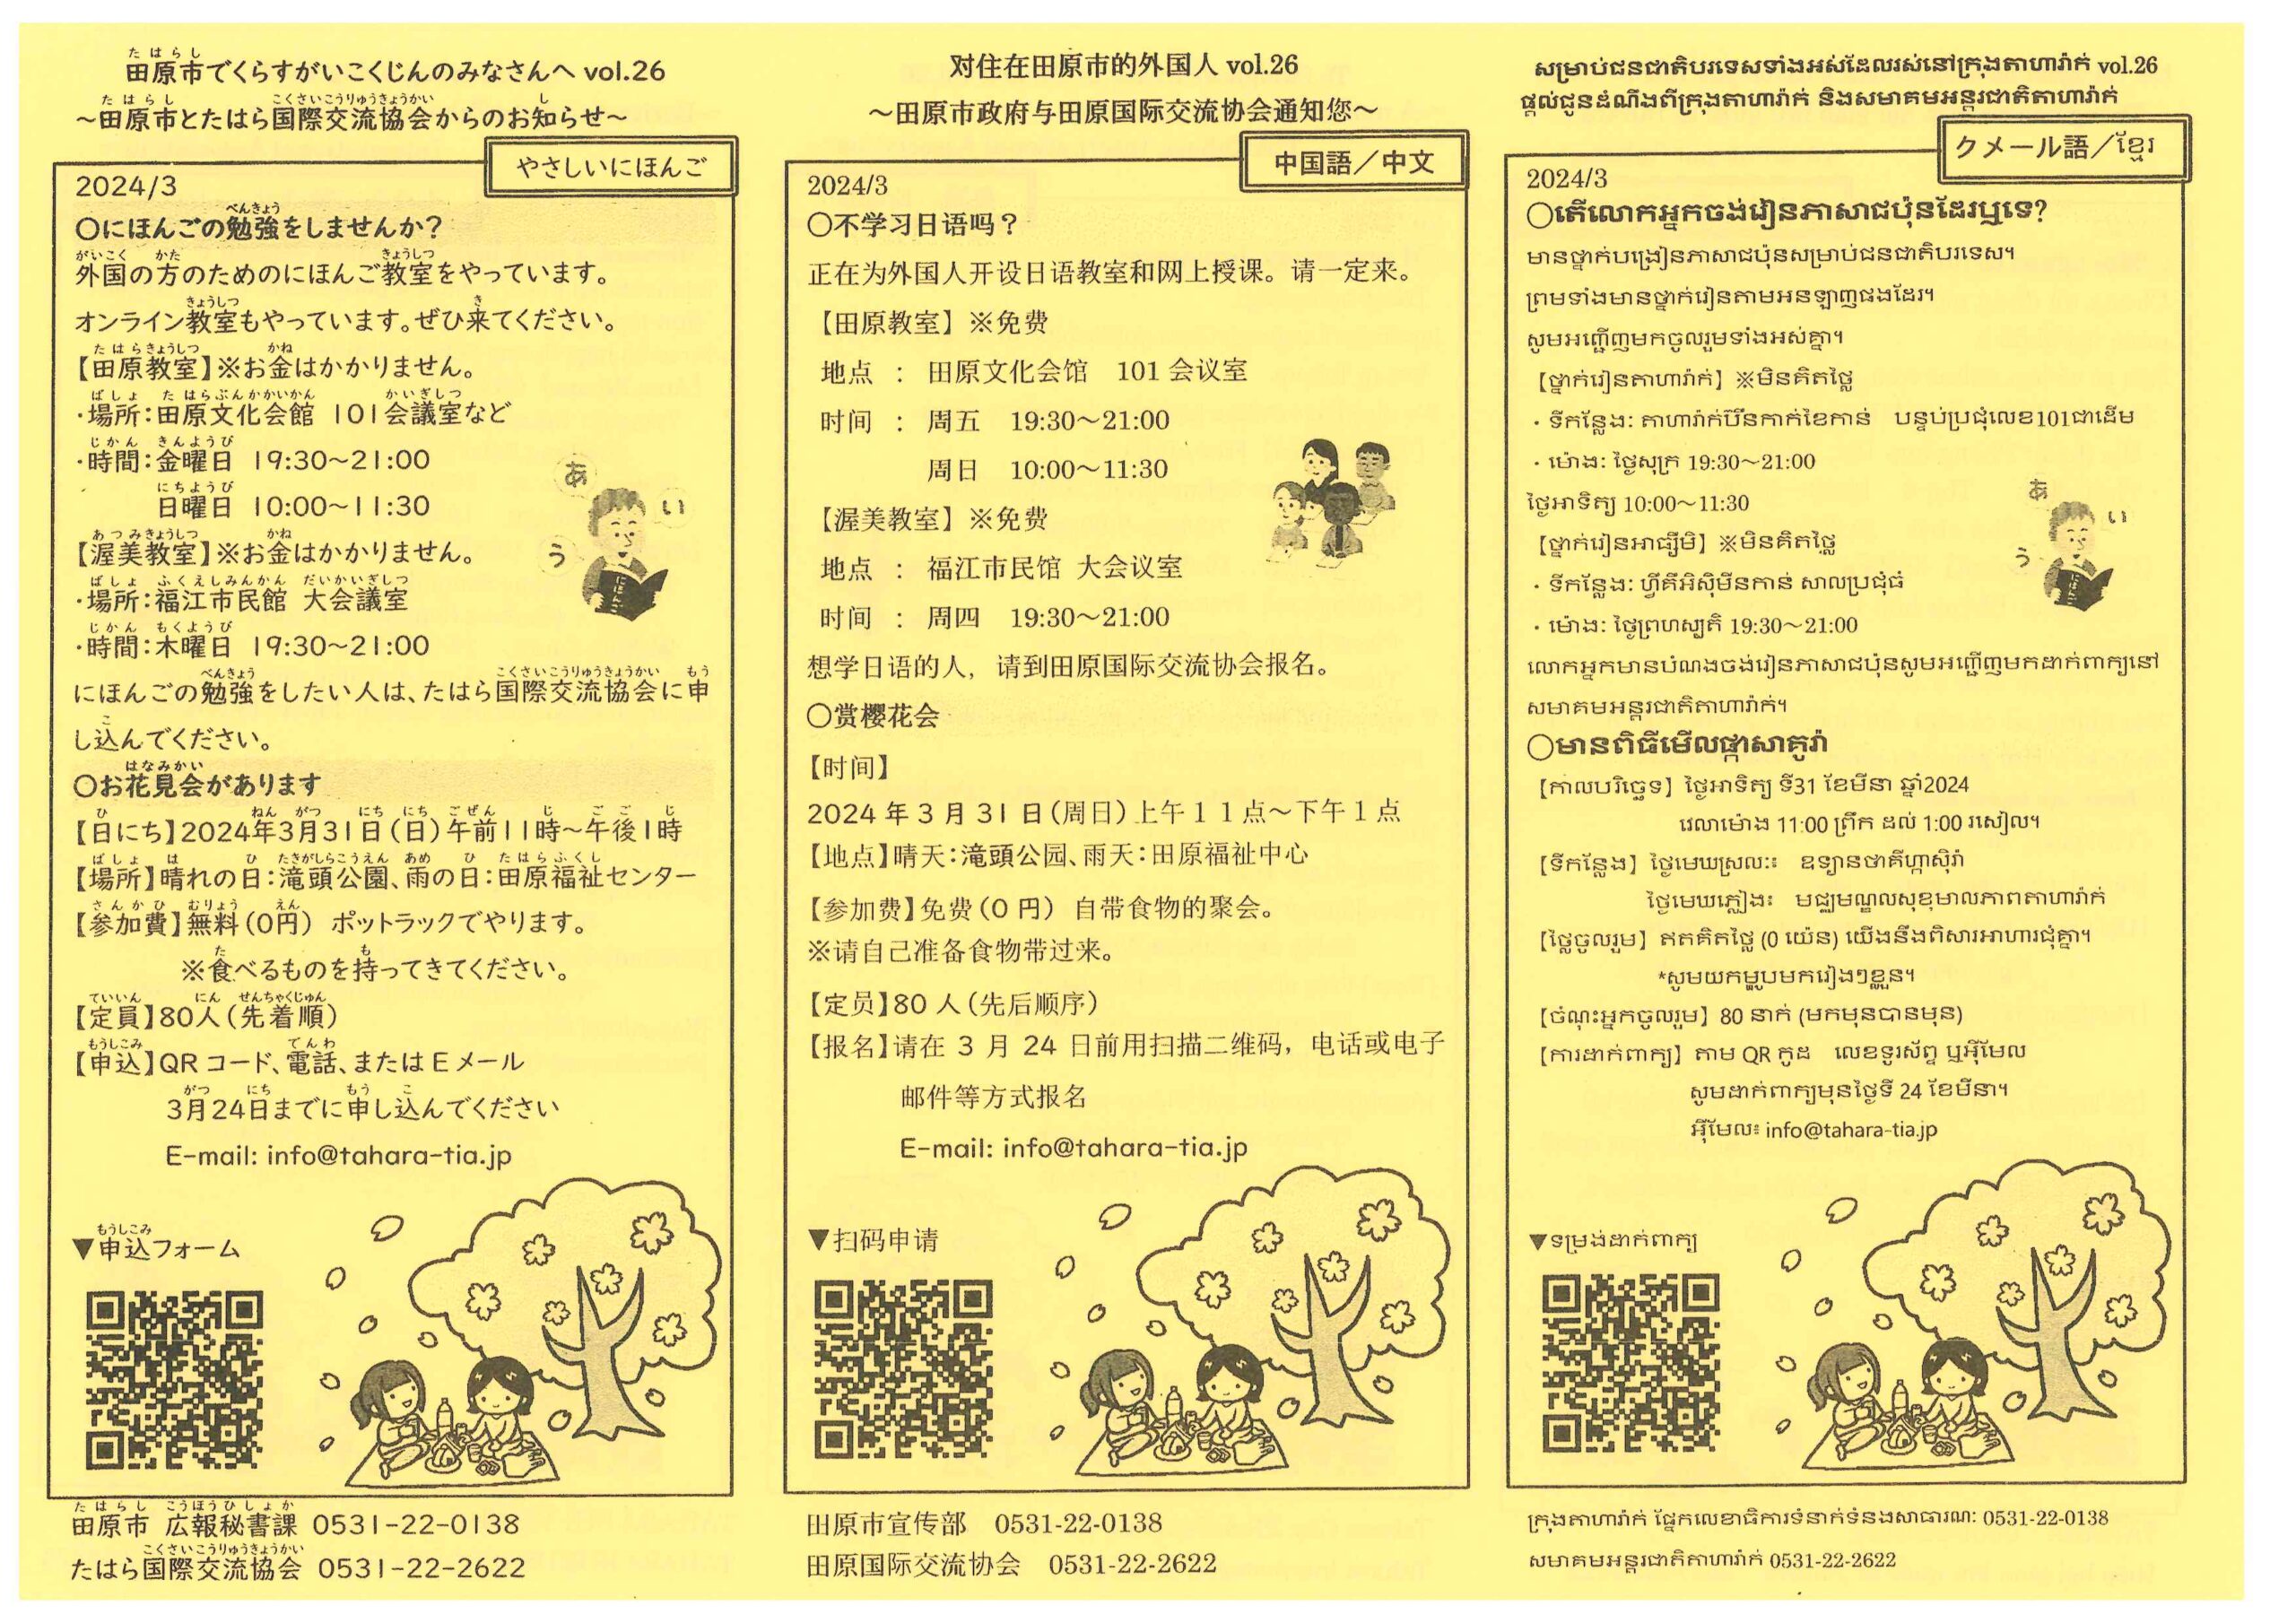 田原市でくらすがいこくじんのみなさんへ vol.26
～田原市とたはら国際交流協会からのお知らせ～
やさしいにほんご
2024/3
〇にほんごの勉強をしませんか？
外国の方のためのにほんご教室をやっています。
オンライン教室もやっています。ぜひ来てください。
【田原教室】※お金はかかりません。
・場所：田原文化会館 101会議室など
・時間：金曜日 19:30～21:00
日曜日 10:00～11:30
【渥美教室】※お金はかかりません。
・場所：福江市民館 大会議室
・時間：木曜日 19:30～21:00
にほんごの勉強をしたい人は、たはら国際交流協会に申
し込んでください。
〇お花見会があります
【日にち】2024年3月31日（日）午前11時～午後1時
【場所】晴れの日：滝頭公園、雨の日：田原福祉センター
【参加費】無料（0円） ポットラックでやります。
※食べるものを持ってきてください。
【定員】80人（先着順）
【申込】QRコード、電話、またはEメール
3月24日までに申し込んでください
E-mail: info@tahara-tia.jp
▼申込フォーム
あ
い
う
にほんご
田原市 広報秘書課 0531-22-0138
たはら国際交流協会 0531-22-2622
对住在田原市的外国人 vol.26
～田原市政府与田原国际交流协会通知您～
中国語／中文
2024/3
〇不学习日语吗？
正在为外国人开设日语教室和网上授课。请一定来。
【田原教室】※免费
地点 ： 田原文化会馆 101 会议室
时间 ： 周五 19:30～21:00
周日 10:00～11:30
【渥美教室】※免费
地点 ： 福江市民馆 大会议室
时间 ： 周四 19:30～21:00
想学日语的人，请到田原国际交流协会报名。
〇赏樱花会
【时间】
2024 年 3 月 31 日（周日）上午 1 1 点～下午 1 点
【地点】晴天：滝頭公园、雨天：田原福祉中心
【参加费】免费（0 円） 自带食物的聚会。
※请自己准备食物带过来。
【定员】80 人（先后顺序）
【报名】请在 3 月 24 日前用扫描二维码，电话或电子
邮件等方式报名
E-mail: info@tahara-tia.jp
▼扫码申请
田原市宣传部 0531-22-0138
田原国际交流协会 0531-22-2622
សម្រាប់ជនជាតិបរទេសទាំងអស់ដែលរស់នៅក្រុងតាហារ៉ាក់ vol.26
ផ្តល់ជូនដំណឹងពីក្រុងតាហារ៉ាក់ និងសមាគមអន្តរជាតិតាហារ៉ាក់
クメール語／ខ្មែរ
2024/3
〇តើលោកអ្នកចង់រៀនភាសាជប៉ុនដែរឬទេ?
មានថ្នាក់បង្រៀនភាសាជប៉ុនសម្រាប់ជនជាតិបរទេស។
ព្រមទាំងមានថ្នាក់រៀនតាមអនឡាញផងដែរ។
សូមអញ្ជើញមកចូលរួមទាំងអស់គ្នា។
【ថ្នាក់រៀនតាហារ៉ាក់】※មិនគិតថ្លៃ
・ទីកន្លែង: តាហារ៉ាក់ប៊ីនកាក់ខៃកាន់ បន្ទប់ប្រជុំលេខ101ជាដើម
・ម៉ោង: ថ្ងៃសុក្រ 19:30～21:00
ថ្ងៃអាទិត្យ 10:00～11:30
【ថ្នាក់រៀនអាធ្ស៊ីមិ】※មិនគិតថ្លៃ
・ទីកន្លែង: ហ្វឹគឹអិស៊ិមីនកាន់ សាលប្រជុំធំ
・ម៉ោង: ថ្ងៃព្រហស្បតិ៍ 19:30～21:00
លោកអ្នកមានបំណងចង់រៀនភាសាជប៉ុនសូមអញ្ជើញមកដាក់ពាក្យនៅ
សមាគមអន្តរជាតិតាហារ៉ាក់។
〇មានពិធីមើលផ្កាសាគូរ៉ា
【កាលបរិច្ឆេទ】 ថ្ងៃអាទិត្យ ទី31 ខែមីនា ឆ្នាំ2024
វេលាម៉ោង 11:00 ព្រឹក ដល់ 1:00 រសៀល។
【ទីកន្លែង】 ថ្ងៃមេឃស្រលះ៖ ឧទ្យានថាគីហ្គាស៊ិរ៉ា
ថ្ងៃមេឃភ្លៀង៖ មជ្ឈមណ្ឌលសុខុមាលភាពតាហារ៉ាក់
【ថ្លៃចូលរួម】 ឥតគិតថ្លៃ (0 យ៉េន) យើងនឹងពិសារអាហារជុំគ្នា។
*សូមយកម្ហូបមករៀងៗខ្លួន។
【ចំណុះអ្នកចូលរួម】 80 នាក់ (មកមុនបានមុន)
【ការដាក់ពាក្យ】 តាម QR កូដ លេខទូរស័ព្ទ ឬអ៊ីមែល
សូមដាក់ពាក្យមុនថ្ងៃទី 24 ខែមីនា។
អ៊ីមែល៖ info@tahara-tia.jp
▼ទម្រង់ដាក់ពាក្យ
あ
い
う
ក្រុងតាហារ៉ាក់ ផ្នែកលេខាធិការទំនាក់ទំនងសាធារណៈ 0531-22-0138
សមាគមអន្តរជាតិតាហារ៉ាក់ 0531-22-2622